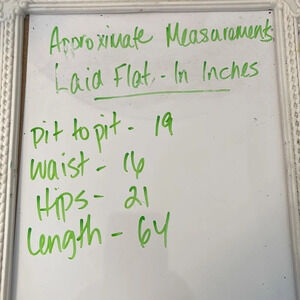 Approximate Measurements
Laid Flat - In Inches
pit to pit - 19
waist - 16
Hips - 21
length - 64